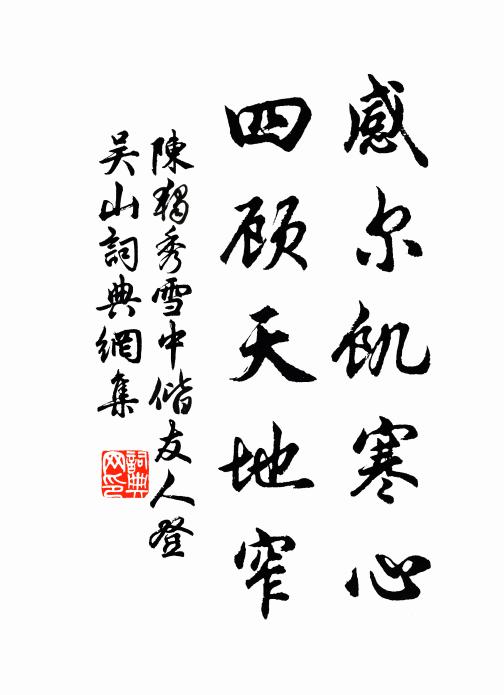 感尔饥寒心
四顾天地窄
陳獨秀雪中偕友人登
吴山詞典網集
詞典网印